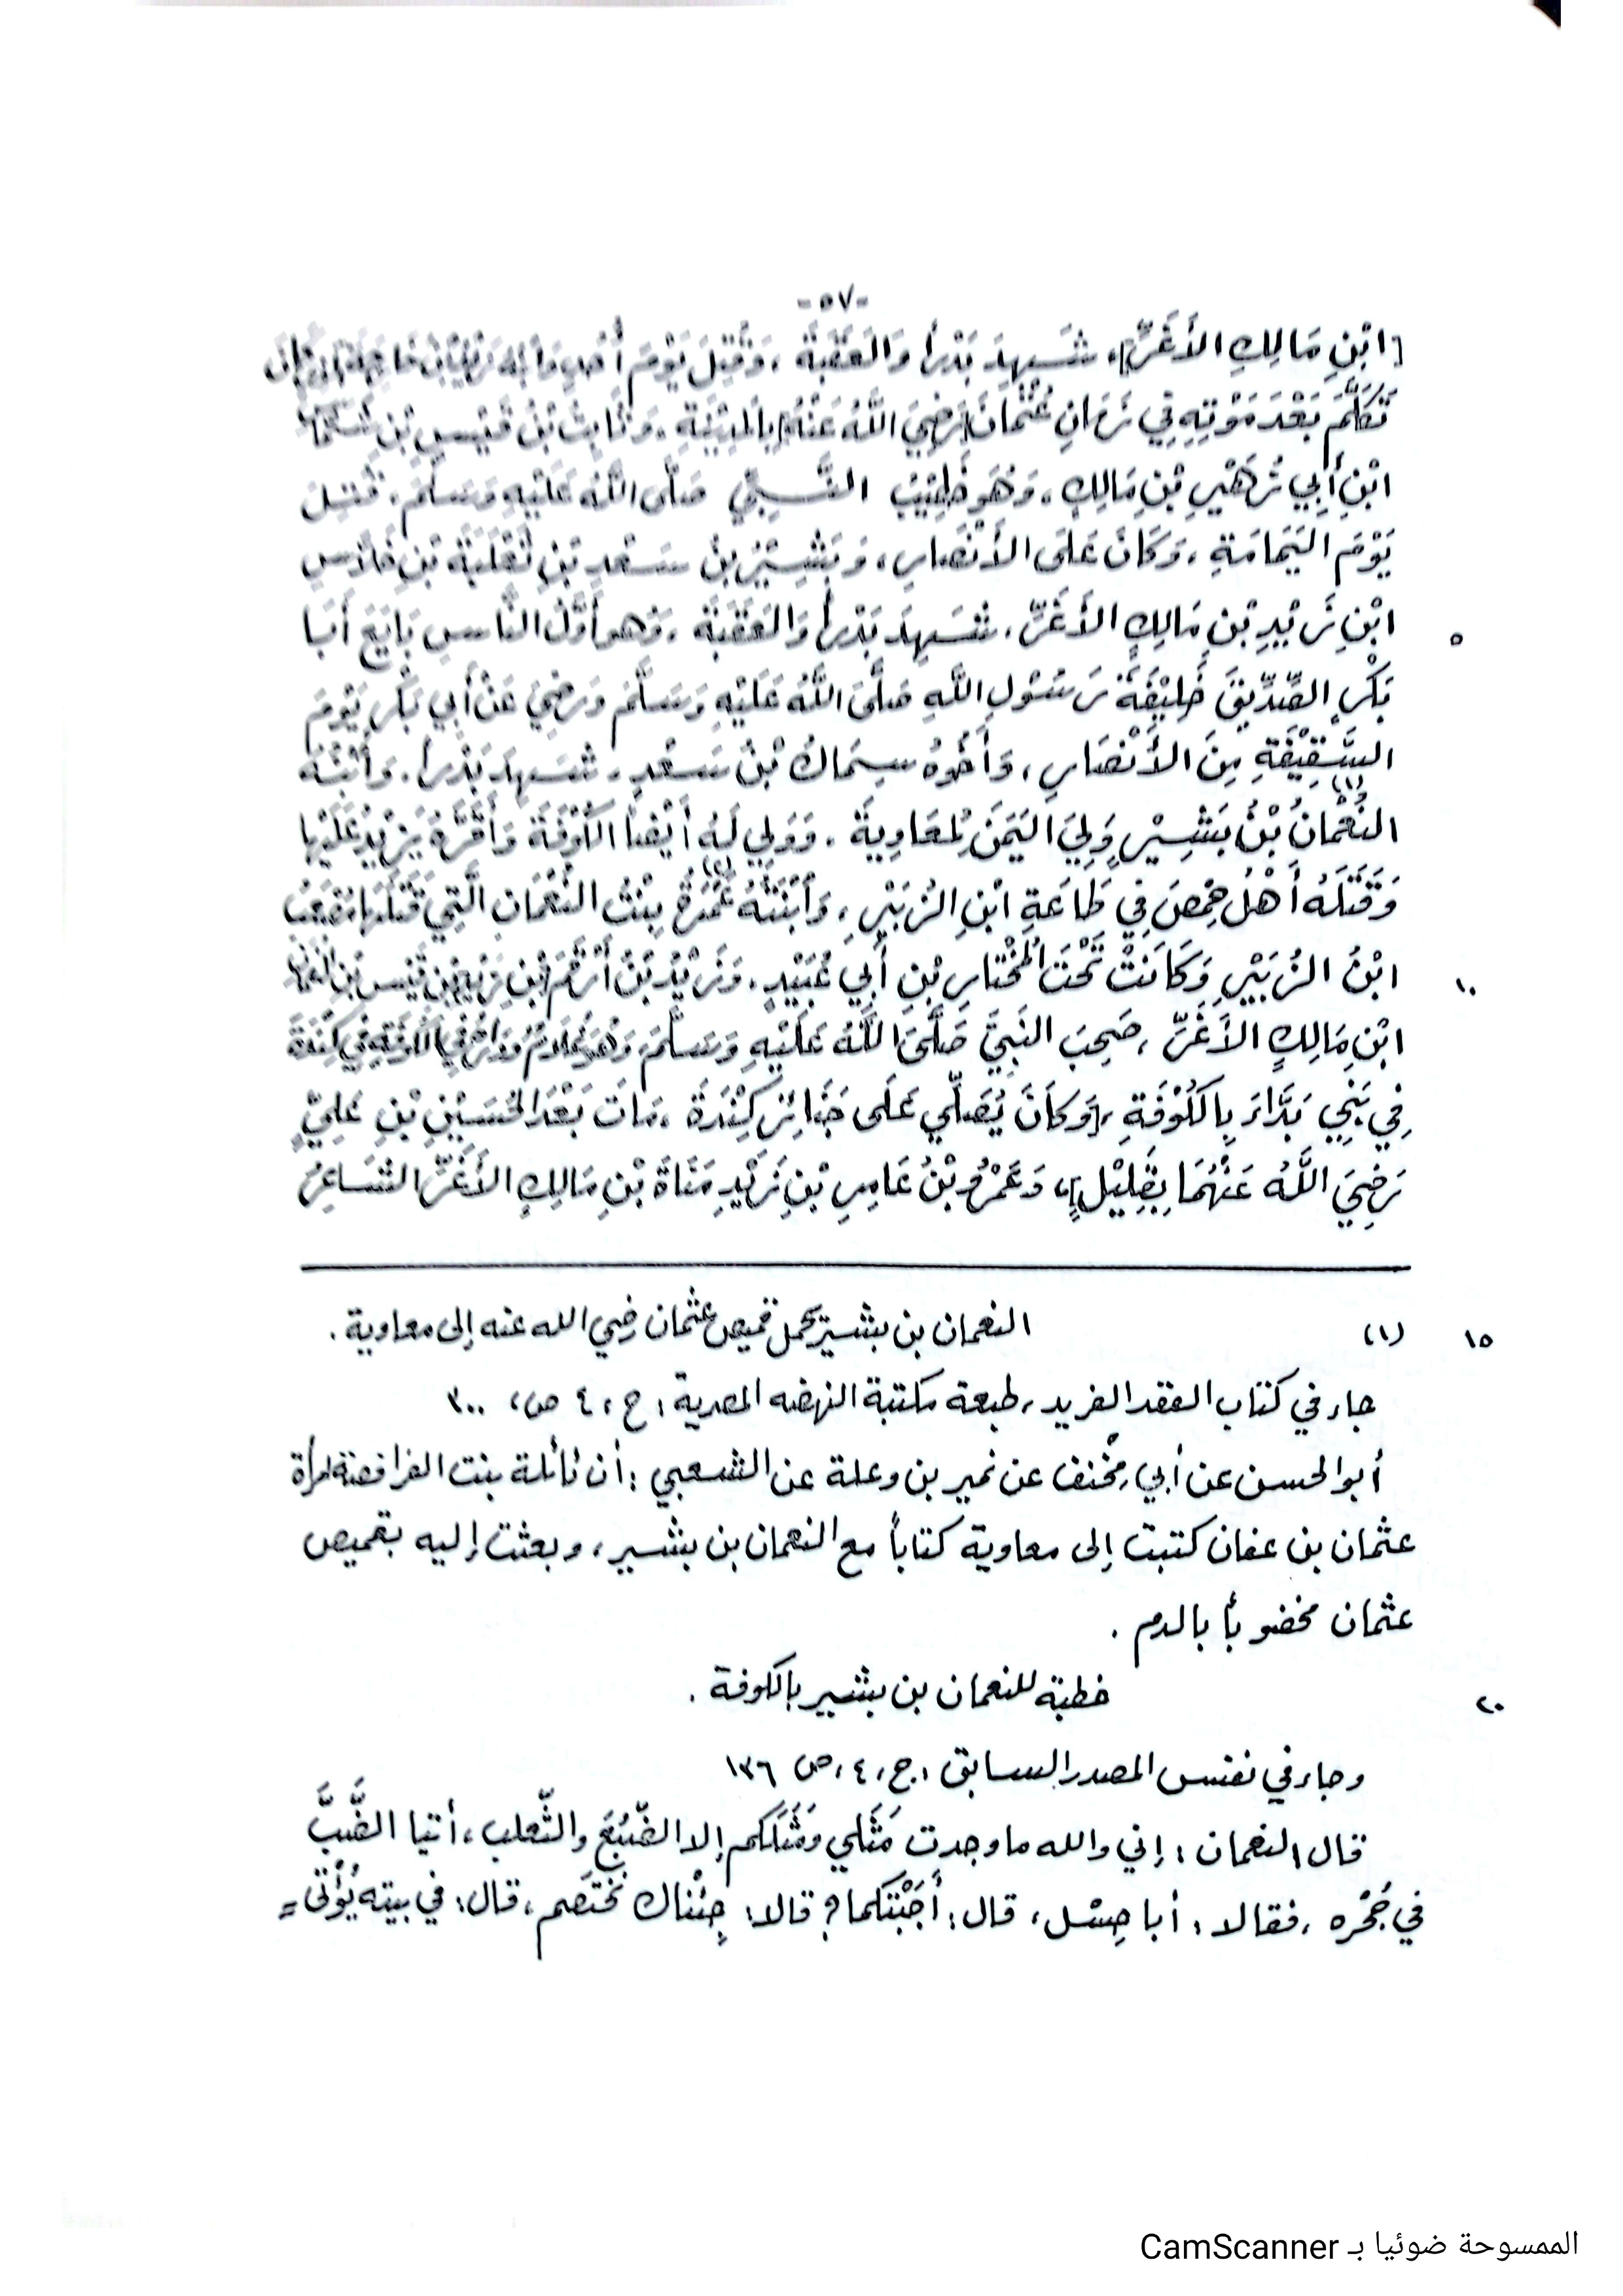 -٥٧-
[ابْنِ مَالِكِ الأَغَرِّ]، شَهِدَ بَدْراً وَالعَقَبَةَ، وَقُتِلَ يَوْمَ أُحُدٍ وَابْنُهُ زَيْدُ بْنُ خَارِجَةَ الَّذِي
تَكَلَّمَ بَعْدَ مَوْتِهِ فِي زَمَانِ عُثْمَانَ [رَضِيَ اللَّهُ عَنْهُ] بِالمَدِيْنَةِ، وَثَابِتُ بْنُ قَيْسِ بْنِ شَمَّاسِ
ابْنِ أَبِي زُهَيْرِ بْنِ مَالِكٍ، وَهُوَ خَطِيْبُ النَّبِيِّ صَلَّى اللَّهُ عَلَيْهِ وَسَلَّمَ، قُتِلَ
يَوْمَ اليَمَامَةِ، وَكَانَ عَلَى الأَنْصَارِ، وَبَشِيْرُ بْنُ سَعْدِ بْنِ ثَعْلَبَةَ بْنِ خَلَاَّسِ
٥ ابْنِ زَيْدِ بْنِ مَالِكٍ الأَغَرِّ، شَهِدَ بَدْراً وَالعَقَبَةَ، وَهو أَوَّلُ النَّاسِ بَايَعَ أَبَا
بَكْرٍ الصِّدِّيْقَ خَلِيْفَةَ رَسُوْلِ اللَّهِ صَلَّى اللَّهُ عَلَيْهِ وَسَلَّمَ وَرَضِيَ عَنْ أَبِي بَكْرٍ يَوْمَ
السَّقِيْفَةِ مِنَ الأَنْصَارِ، وَأَخُوهُ سِمَاكُ بْنُ سَعْدٍ، شَهِدَ بَدْراً، وَابْنُهُ
النُّعْمَانُ بْنُ بَشِيْرٍ (١) وَلِيَ اليَمَنَ لِمُعَاوِيَةَ، وَوَلِي لَهُ أَيْضاً الكُوْفَةَ وَأَقَرَّهُ يَزِيْدُ عَلَيْهَا
وَقَتَلَهُ أَهْلُ حِمْصَ فِي طَاعَةِ ابْنِ الزُّبَيْرِ، وَابْنَتُهُ عَمْرَةُ (٢) بِنْتُ النُّعْمَانِ الَّتِي قَتَلَهَا مُصْعَبُ
١٠ ابْنُ الزُّبَيْرِ وَكَانَتْ تَحْتَ المُخْتَارِ بْنِ أَبِي عُبَيْدٍ، وَزَيْدُ بْنُ أَرْقَمَ [بْنِ زَيْدِ] بْنِ قَيْسِ بْنِ النُّعْمَانِ
ابْنِ مَالِكٍ الأَغَرِّ، صَحِبَ النَّبِيَّ صَلَّى اللَّهُ عَلَيْهِ وَسَلَّمَ، وَهُوَ غُلَامٌ وَدَارُهُ فِي الكُوْفَةِ فِي كِنْدَةَ
فِي بَنِي بَدَّاءَ بِالكُوْفَةِ، [وَكَانَ يُصَلِّي عَلَى جَنَائِزِ كِنْدَةَ، مَاتَ بَعْدَ الحُسَيْنِ بْنِ عَلِيٍّ
رَضِيَ اللَّهُ عَنْهُمَا بِقَلِيْلٍ]، وَعَمْرُو بْنُ عَامِرِ بْنِ زَيْدِ مَنَاةَ بْنِ مَالِكٍ الأَغَرِّ الشَّاعِرُ
١٥ (١) النعمان بن بشير يحمل قميص عثمان رضي الله عنه إلى معاوية.
جاء في كتاب العقد الفريد، طبعة مكتبة النهضه المصرية، ج، ٤ ص، ٣٠٠
أبو الحسن عن أبي مِخْنف عن نمير بن وعلة عن الشعبي: أن نائلة بنت الفرافصة امرأة
عثمان بن عفان كتبت إلى معاوية كتاباً مع النعمان بن بشير، وبعثت إليه بقميص
عثمان مخضوباً بالدم.
٢٠ خطبة للنعمان بن بشير بالكوفة.
وجاء في نفس المصدر السابق، ج، ٤، ص ١٣٦
قال النعمان: إني والله ما وجدت مَثَلي ومَثَلَكم إلا الضّبُعَ والثّعلب، أتيا الضَّبَّ
في جُحْره، فقالا: أبا حِسْل، قال: أَجَبْتُكما؟ قالا: جِئْناك نَخْتَصم، قال: في بيته يُؤْتى =
الممسوحة ضوئيا بـ CamScanner